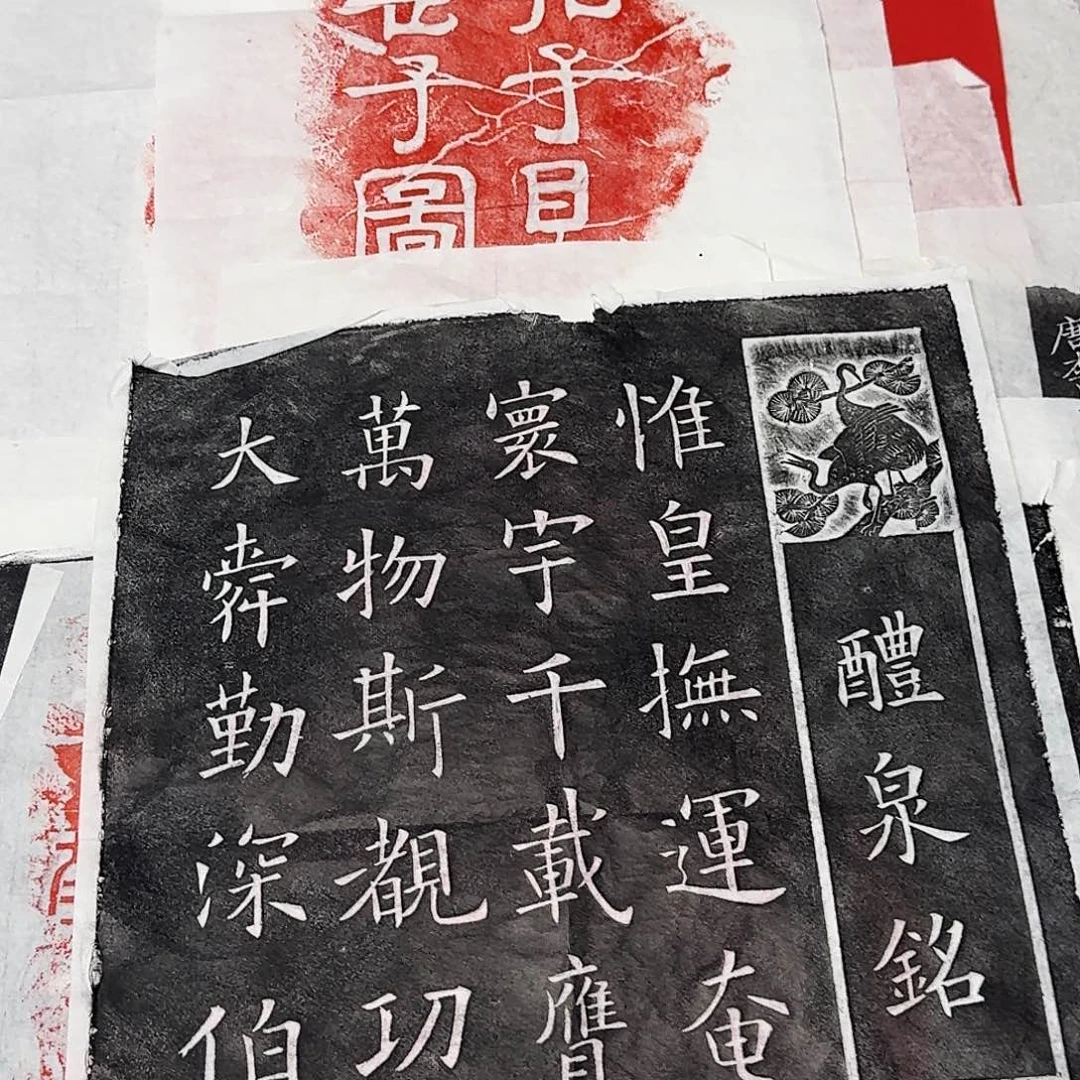 子見
子圖
醴泉銘
惟皇撫運奄
寰宇千載膺
萬物斯覩功
大舜勤深伯